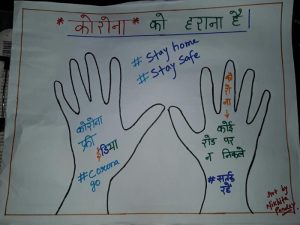 * कोरोना * को हराना है |
# Stay home
# Stay safe
कोरोना
फ्री
इंडिया
# Corona
go
कोरोना →
कोई
रोड पर
न निकले
# सतर्क
रहें
Art by
Nikhita
Pandey